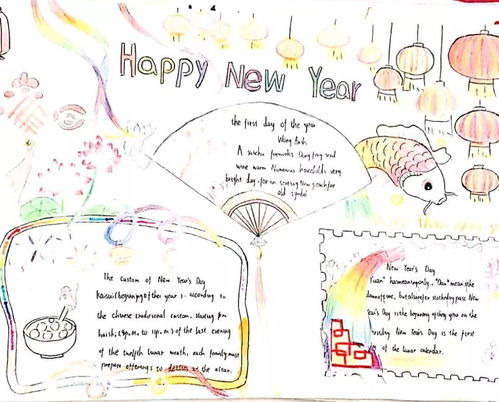 Happy New Year
the first day of the year
Wang Anshi
A suichu fireworks Dong feng send
wine warm Numerous households very
bright day, for an
old symbol
The custom of New Year's Day
beginning of the year is according to
the chinese traditional custom. starting from
haishi, (9p.m. to 11p.m.) of the last evening
of the twelfth lunar month, each family must
prepare offerings to deities at the altar.
New Year's Day
"Yuan" has meaning only, "Dan" means the
New
Year's Day is the beginning of the year on the
New Year's Day is the first
of the lunar calendar.